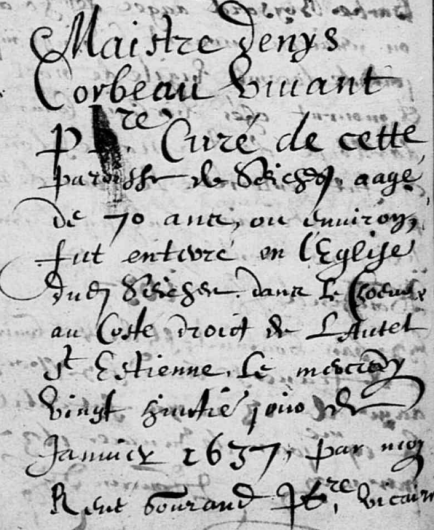 Maistre Denys
Corbeau vivant
Pbre. Curé de cette
paroisse de Seiches, aagé
de 70 ans, ou environ,
fut enterré en l'Eglise
dud Seiches. dans le Choeur
au Costé droict de L'Autel
St Estienne, Le mercredy
vingt huictie jour de
Janvier 1637, par moy
René Gourand Pbre, vicaire